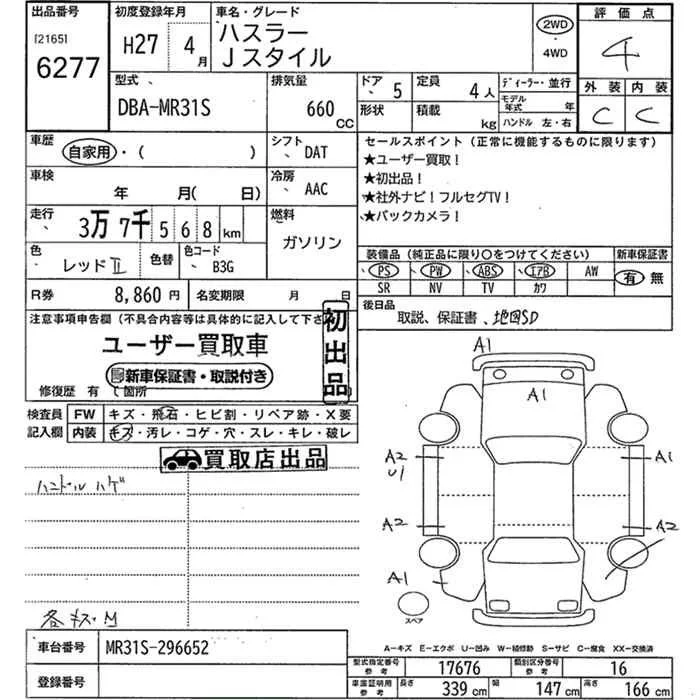 出品番号 初度登録年月 車名・グレード 評価点
[2165] 6277 H27 4月 ハスラー Jスタイル 2WD 4WD 4
型式 排気量 ドア 5 定員 4人 ディーラー・並行 外装 内装
DBA-MR31S 660 CC 形状 積載 kg モデル年式 年 C C
ハンドル 左・右
車歴 シフト セールスポイント (正常に機能するものに限ります)
自家用・( ) DAT ★ユーザー買取!
車検 冷房 ★初出品!
年 月( 日) AAC ★社外ナビ!フルセグTV!
走行 燃料 ★バックカメラ!
3万7千568km ガソリン
色 色替 色コード 装備品 (純正品に限り○をつけてください) 新車保証書
レッドII B3G PS PW ABS エアB AW 有 無
SR NV TV カワ
R券 8,860円 名変期限 月 日 後日品
取説、保証書、地図SD
注意事項申告欄 (不具合内容等は具体的に記入して下さ
初出品
ユーザー買取車
新車保証書・取説付き
修復歴 有 (箇所
検査員 FW キズ・飛石・ヒビ割・リペア跡・X要
記入欄 内装 キズ・汚レ・コゲ・穴・スレ・キレ・破レ
買取店出品
ハンドル ハゲ
A1
A1
A2 A1
U1
A2 A2
A1
スペア
各キズ・M
車台番号 MR31S-296652
A-キズ E-エクボ U-凹み W-補修跡 S-サビ C-腐食 XX-交換済
型式指定番号 参考 17676 類別区分番号 参考 16
登録番号
車庫証明用 参考 長さ 339cm 幅 147cm 高さ 166cm